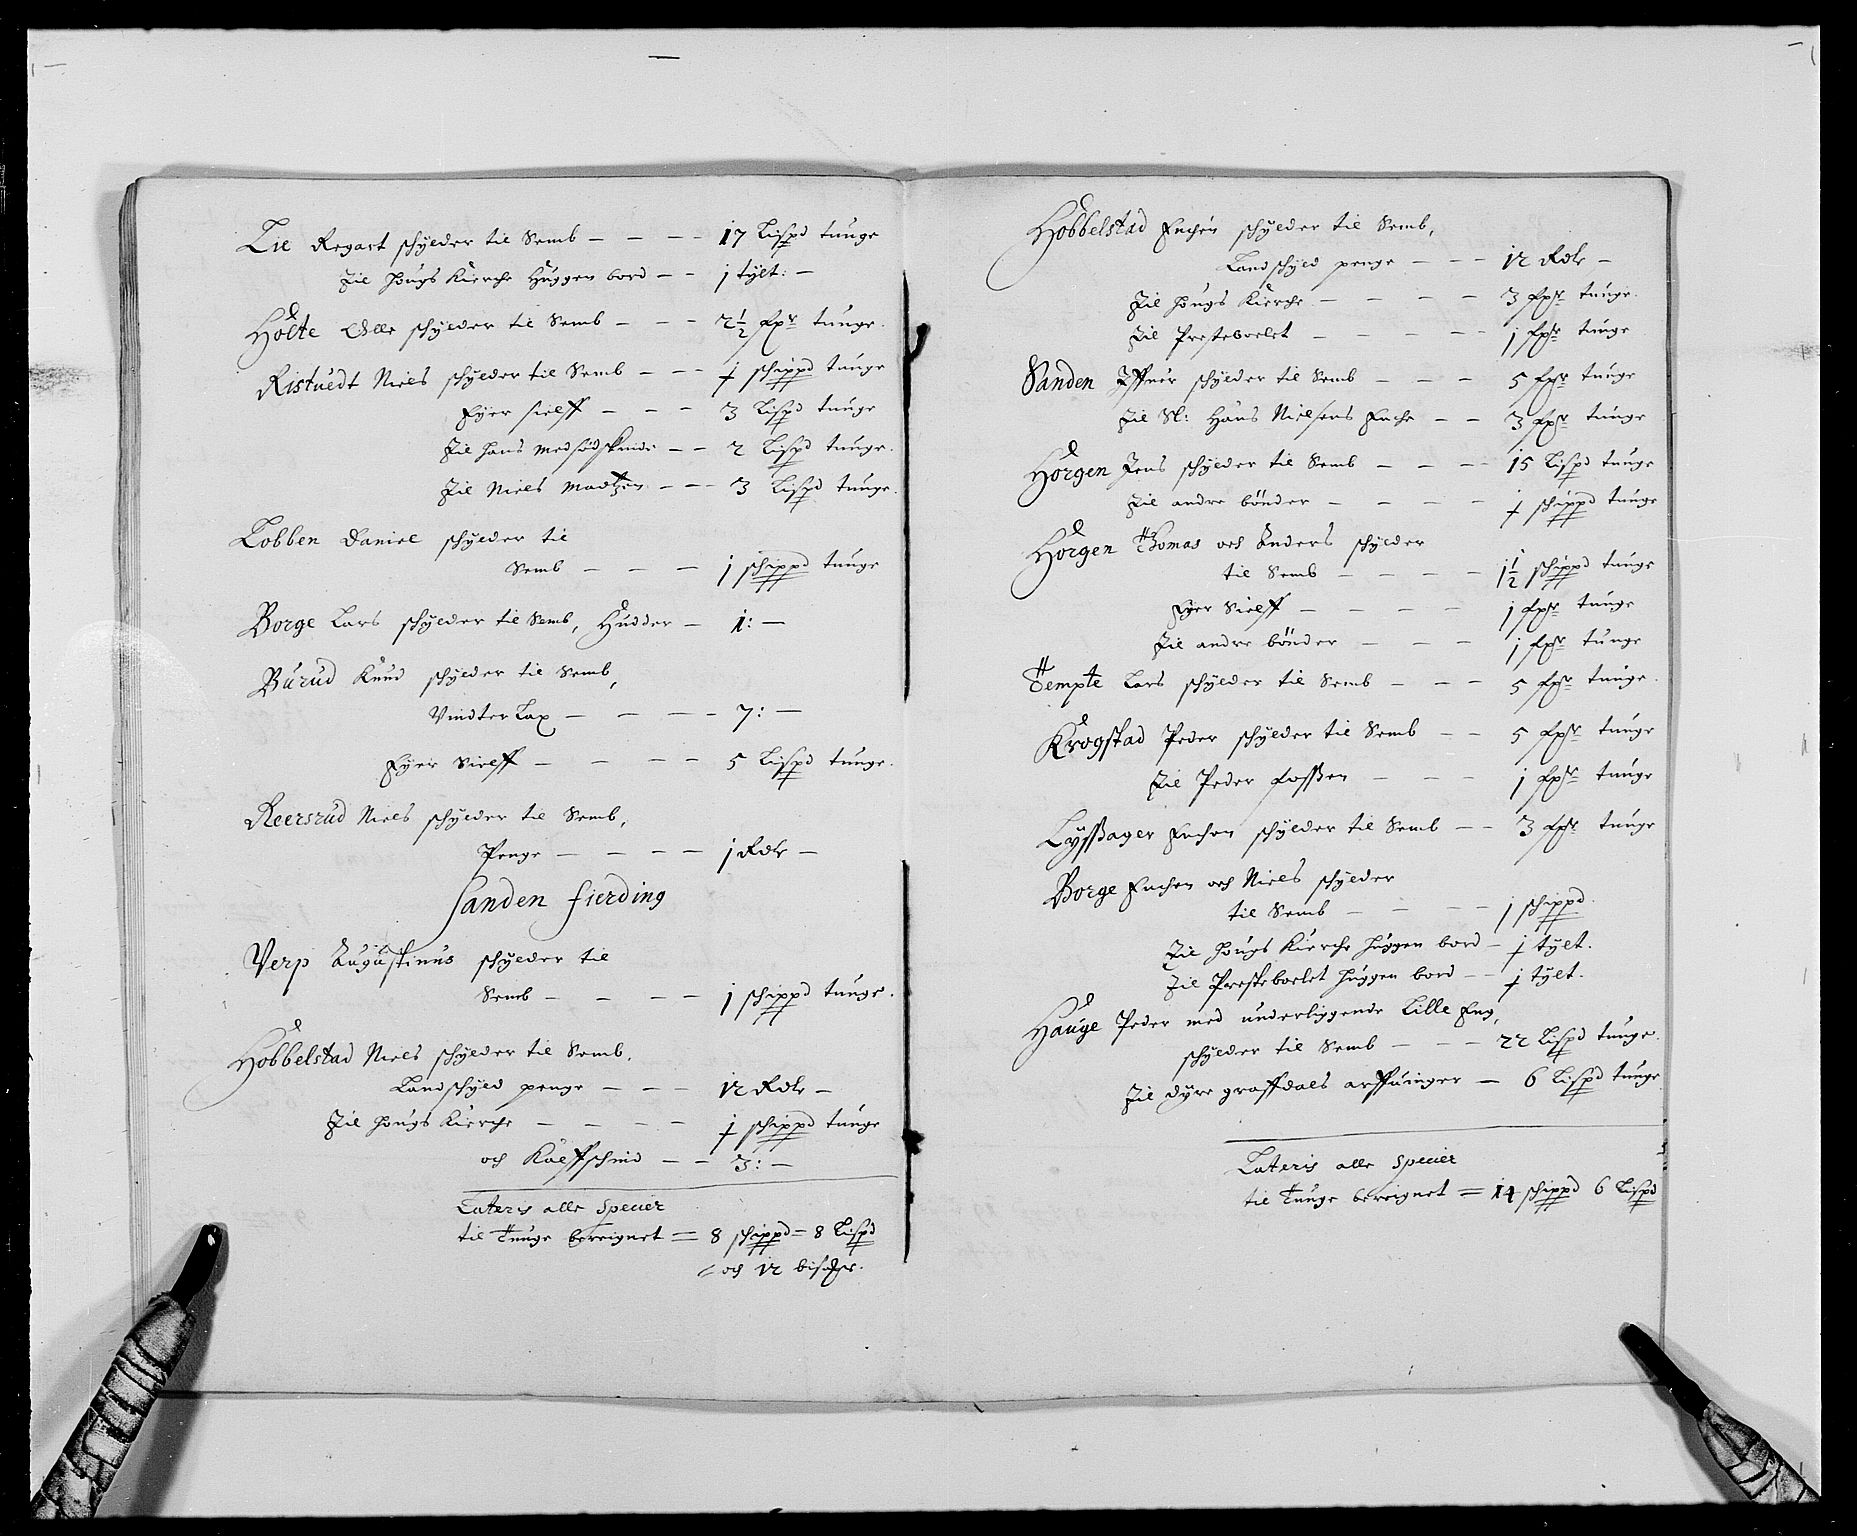 Lie Regart schylder til Semb — — — 17 Lispd tunge
Til Hougs Kierche Huggen bord — — 1 tylt: —
Holte Olle schylder til Semb — — — 2½ fpr tunge.
Ristuedt Niels schylder til Semb — — — 1 schippd tunge
Eyer sielff — — — 3 Lispd tunge
Til Hans Medsødskinde — — 2 Lispd tunge.
Til Niels Madtzen — — — 3 Lispd tunge.
Lobben Daniel schylder til
Semb — — — 1 schippd tunge
Borge Lars schylder til Semb, Hudder — 1: —
Burud Knud schylder til Semb,
Vindter Lax — — — — 7: —
Eyer Sielff — — — — 5 Lispd tunge.
Reersrud Niels schylder til Semb,
Penge — — — — 1 Rdr —
Sanden fierding
Verp Augustinus schylder til
Semb — — — — 1 schippd tunge.
Hobbelstad Niels schylder til Semb,
Landschyld penge — — — 12 Rdr —
Til Hougs Kierche — — — — 1 schippd tunge
och Kalffschind — — 3: —
Lateris alle Specier
til Tunge bereignet = 8 schippd = 8 Lispd
och 12 bismer.
Hobbelstad Enchen schylder til Semb,
Landschyld penge — — — 12 Rdr —
Til Hougs Kierche — — — — 3 fpr tunge.
Til Presteboelet — — — — 1 fpr tunge
Sanden Iffuer schylder til Semb — — — 5 fpr tunge
Til Sl: Hans Nielsens Enche — — 3 fpr tunge
Horgen Jens schylder til Semb — — — 15 Lispd tunge
Til andre bönder — — — — 1 schippd tunge
Horgen Thomas och Anders schylder
til Semb — — — — 1½ schippd tunge
Eyer Sielff — — — — 1 fpr tunge
Til andre bönder — — — 1 fpr tunge
Tempte Lars schylder til Semb — — — 5 fpr tunge.
Krogstad Peder schylder til Semb — — 5 fpr tunge
Til Peder fossen — — — 1 fpr tunge
Lyssager Enchen schylder til Semb — — 3 fpr tunge
Borge Enchen och Niels schylder
til Semb — — — — 1 schippd.
Til Hougs Kierche huggen bord — 1 tylt.
Til Presteboelet huggen bord — — 1 tylt.
Hauge Peder med underliggende Lille Eng,
schylder til Semb — — — 22 Lispd tunge.
Til dyre graffdals arffuinger — 6 Lispd tunge
Lateris alle Specier
til Tunge bereignet = 14 schippd 6 Lispd